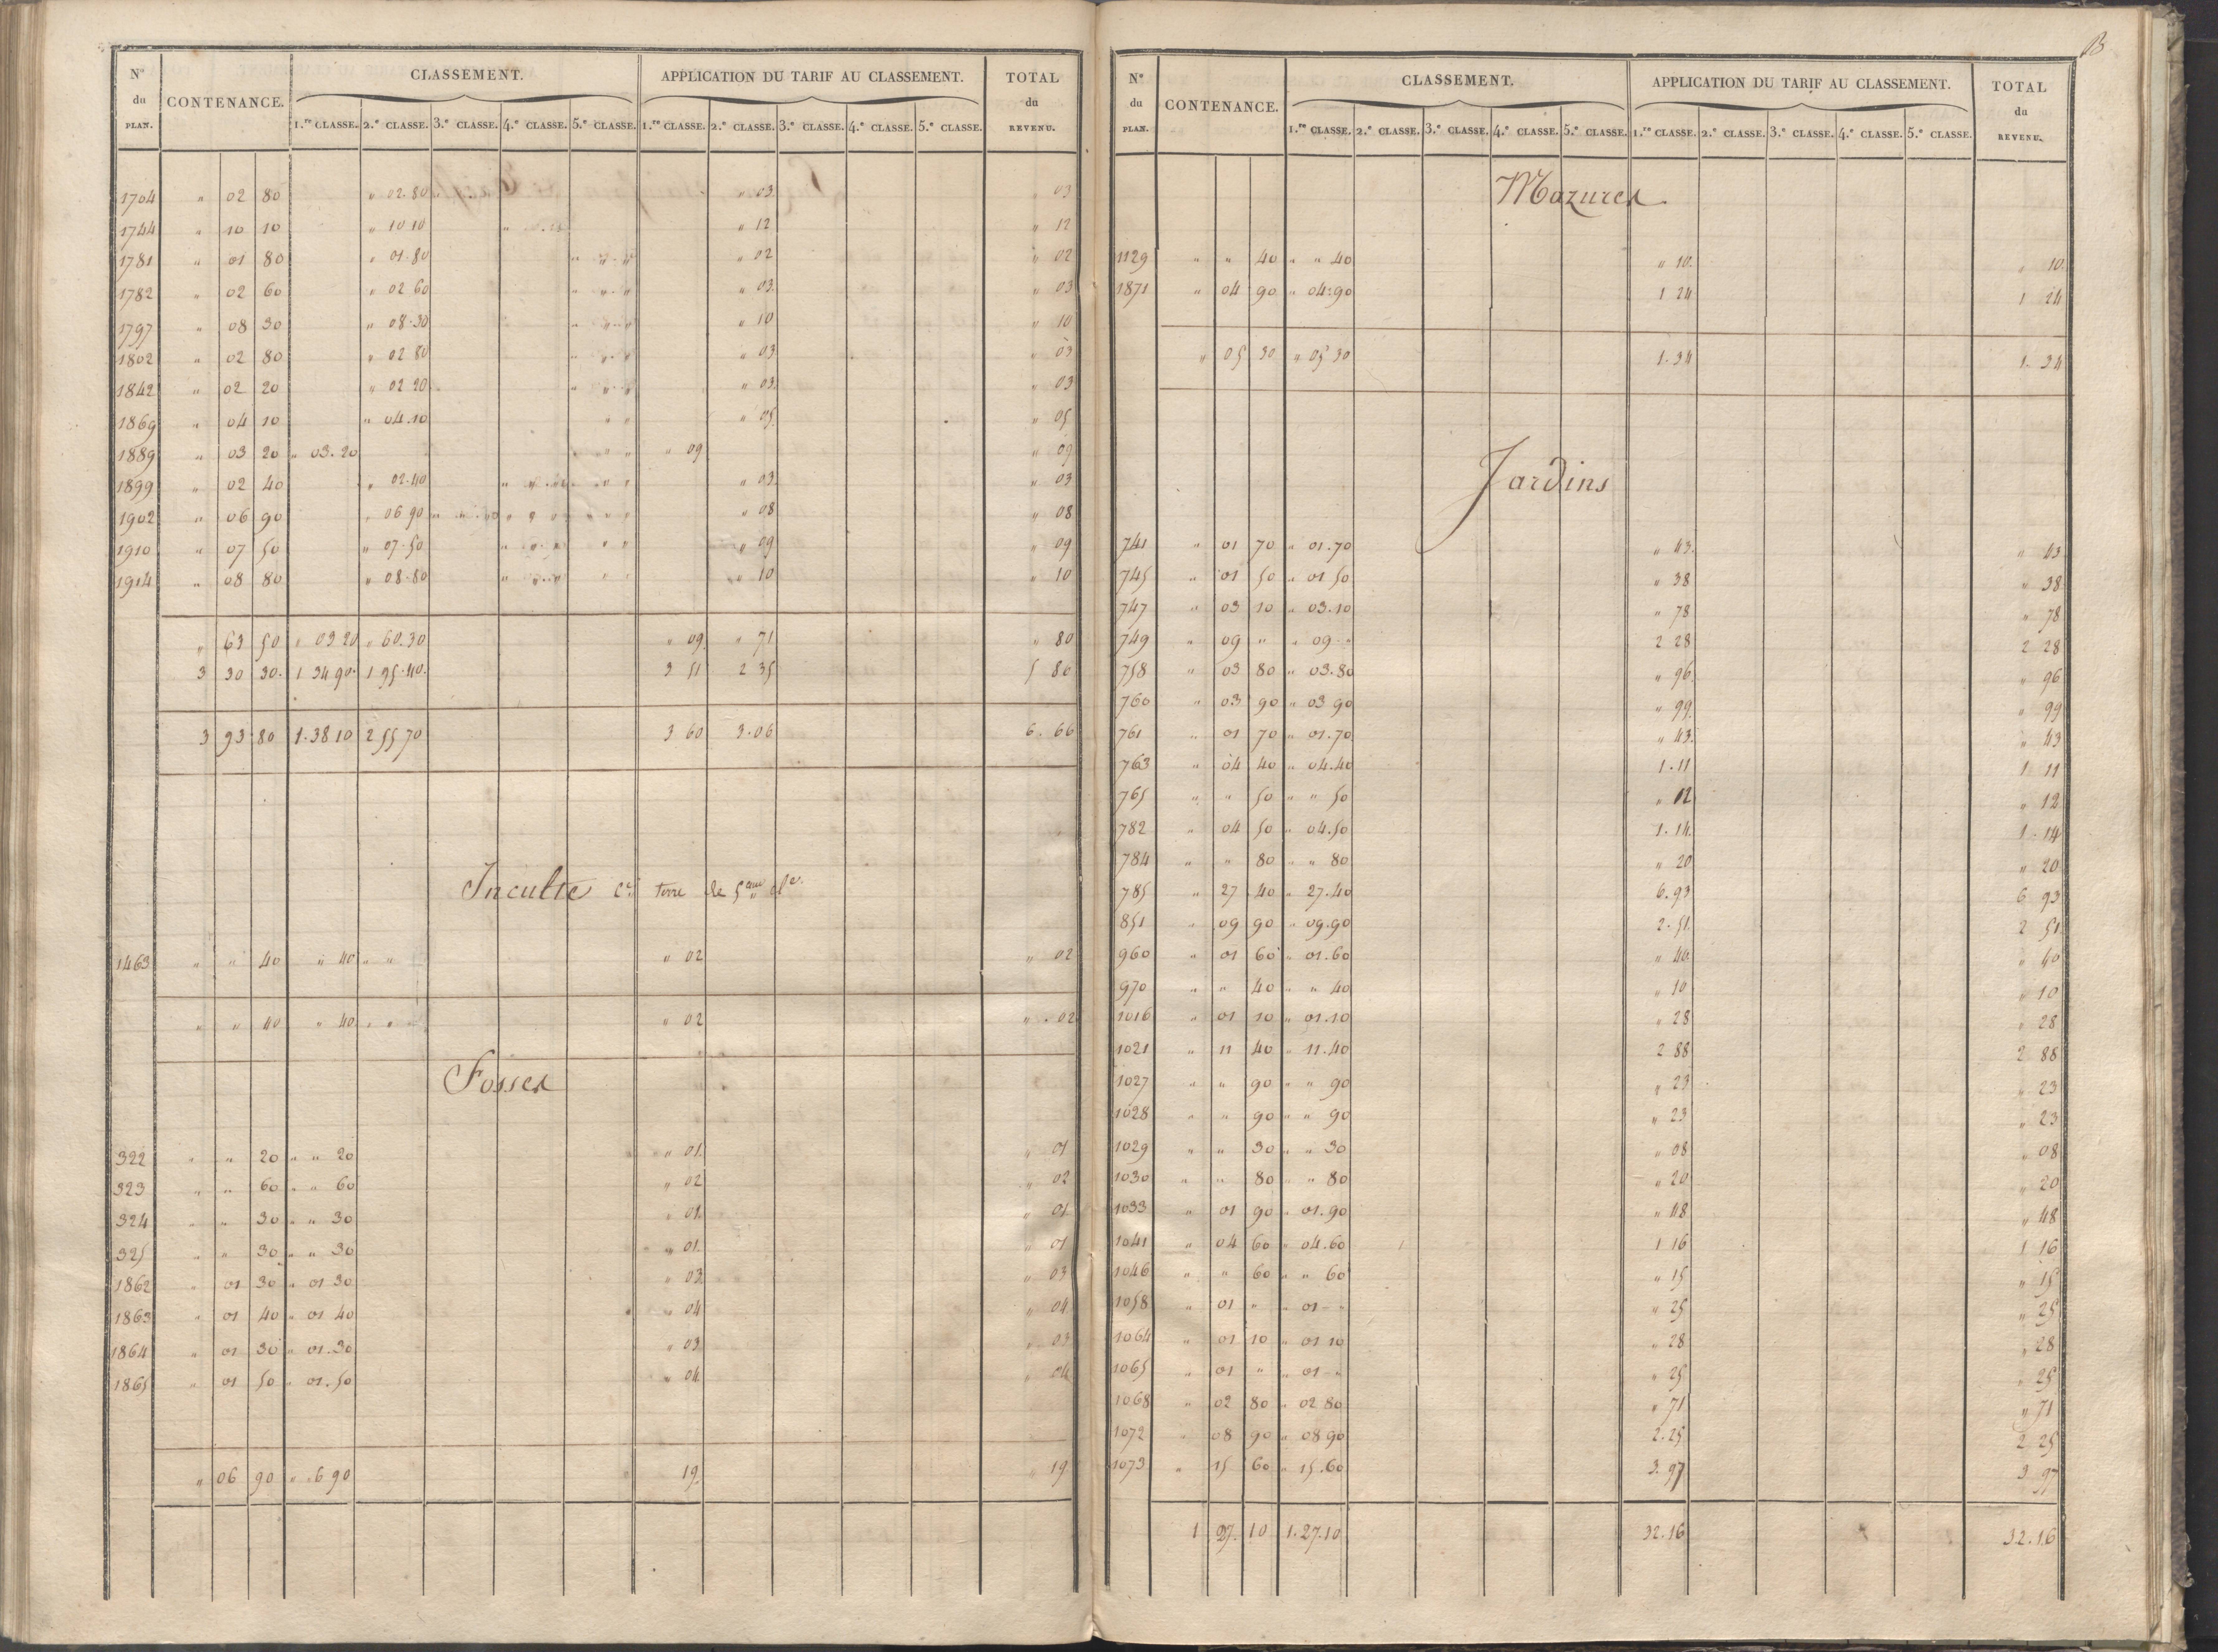 N.º du PLAN. CONTENANCE. CLASSEMENT. APPLICATION DU TARIF AU CLASSEMENT. TOTAL du REVENU.
1.re CLASSE. 2.e CLASSE. 3.e CLASSE. 4.e CLASSE. 5.e CLASSE. 1.re CLASSE. 2.e CLASSE. 3.e CLASSE. 4.e CLASSE. 5.e CLASSE.
1704 " 02 80 " 02.80 " 03 " 03
1744 " 10 10 " 10 10 " 12 " 12
1781 " 01 80 " 01.80 " 02 " 02
1782 " 02 60 " 02 60 " 03 " 03
1797 " 08 30 " 08.30 " 10 " 10
1802 " 02 80 " 02 80 " 03 " 03
1842 " 02 20 " 02 20 " 03 " 03
1869 " 04 10 " 04.10 " 05 " 05
1889 " 03 20 " 03.20 " 09 " 09
1899 " 02 40 " 02.40 " 03 " 03
1902 " 06 90 " 06 90 " 08 " 08
1910 " 07 50 " 07.50 " 09 " 09
1914 " 08 80 " 08.80 " 10 " 10
" 63 50 " 03 20 " 60.30 " 09 " 71 " 80
3 30 30 1 34 90 1 95.40 3 51 2 35 5 86
3 93 80 1.38 10 2 55 70 3 60 3.06 6.66
Inculte c.e terre de 5eme cl.e
1463 " " 40 " 40 " " " 02 " 02
" " 40 " 40 " " " 02 " 02
Fosses
322 " " 20 " " 20 " 01 " 01
323 " " 60 " " 60 " 02 " 02
324 " " 30 " " 30 " 01 " 01
325 " " 30 " " 30 " 01 " 01
1862 " 01 30 " 01 30 " 03 " 03
1863 " 01 40 " 01 40 " 04 " 04
1864 " 01 30 " 01.30 " 03 " 03
1865 " 01 50 " 01.50 " 04 " 04
" 06 90 " 6 90 19 " 19
N.º du PLAN. CONTENANCE. CLASSEMENT. APPLICATION DU TARIF AU CLASSEMENT. TOTAL du REVENU.
1.re CLASSE. 2.e CLASSE. 3.e CLASSE. 4.e CLASSE. 5.e CLASSE. 1.re CLASSE. 2.e CLASSE. 3.e CLASSE. 4.e CLASSE. 5.e CLASSE.
Mazures
1129 " " 40 " " 40 " 10 " 10
1871 " 04 90 " 04.90 1 24 1 24
" 05 30 " 05 30 1.34 1.34
Jardins
741 " 01 70 " 01.70 " 43 " 43
745 " 01 50 " 01 50 " 38 " 38
747 " 03 10 " 03.10 " 78 " 78
749 " 09 " " 09 " 2 28 2 28
758 " 03 80 " 03.80 " 96 " 96
760 " 03 90 " 03 90 " 99 " 99
761 " 01 70 " 01.70 " 43 " 43
763 " 04 40 " 04.40 1.11 1 11
765 " " 50 " " 50 " 12 " 12
782 " 04 50 " 04.50 1.14 1.14
784 " " 80 " " 80 " 20 " 20
785 " 27 40 " 27.40 6.93 6 93
851 " 09 90 " 09.90 2.51 2 51
960 " 01 60 " 01.60 " 40 " 40
970 " " 40 " " 40 " 10 " 10
1016 " 01 10 " 01.10 " 28 " 28
1021 " 11 40 " 11.40 2 88 2 88
1027 " " 90 " " 90 " 23 " 23
1028 " " 90 " " 90 " 23 " 23
1029 " " 30 " " 30 " 08 " 08
1030 " " 80 " " 80 " 20 " 20
1033 " 01 90 " 01.90 " 48 " 48
1041 " 04 60 " 04.60 1 16 1 16
1046 " " 60 " " 60 " 15 " 15
1058 " 01 " " 01 " " 25 " 25
1064 " 01 10 " 01 10 " 28 " 28
1065 " 01 " " 01 " " 25 " 25
1068 " 02 80 " 02 80 " 71 " 71
1072 " 08 90 " 08 90 2.25 2 25
1073 " 15 60 " 15.60 3.97 3 97
1 27 10 1.27.10 32.16 32.16